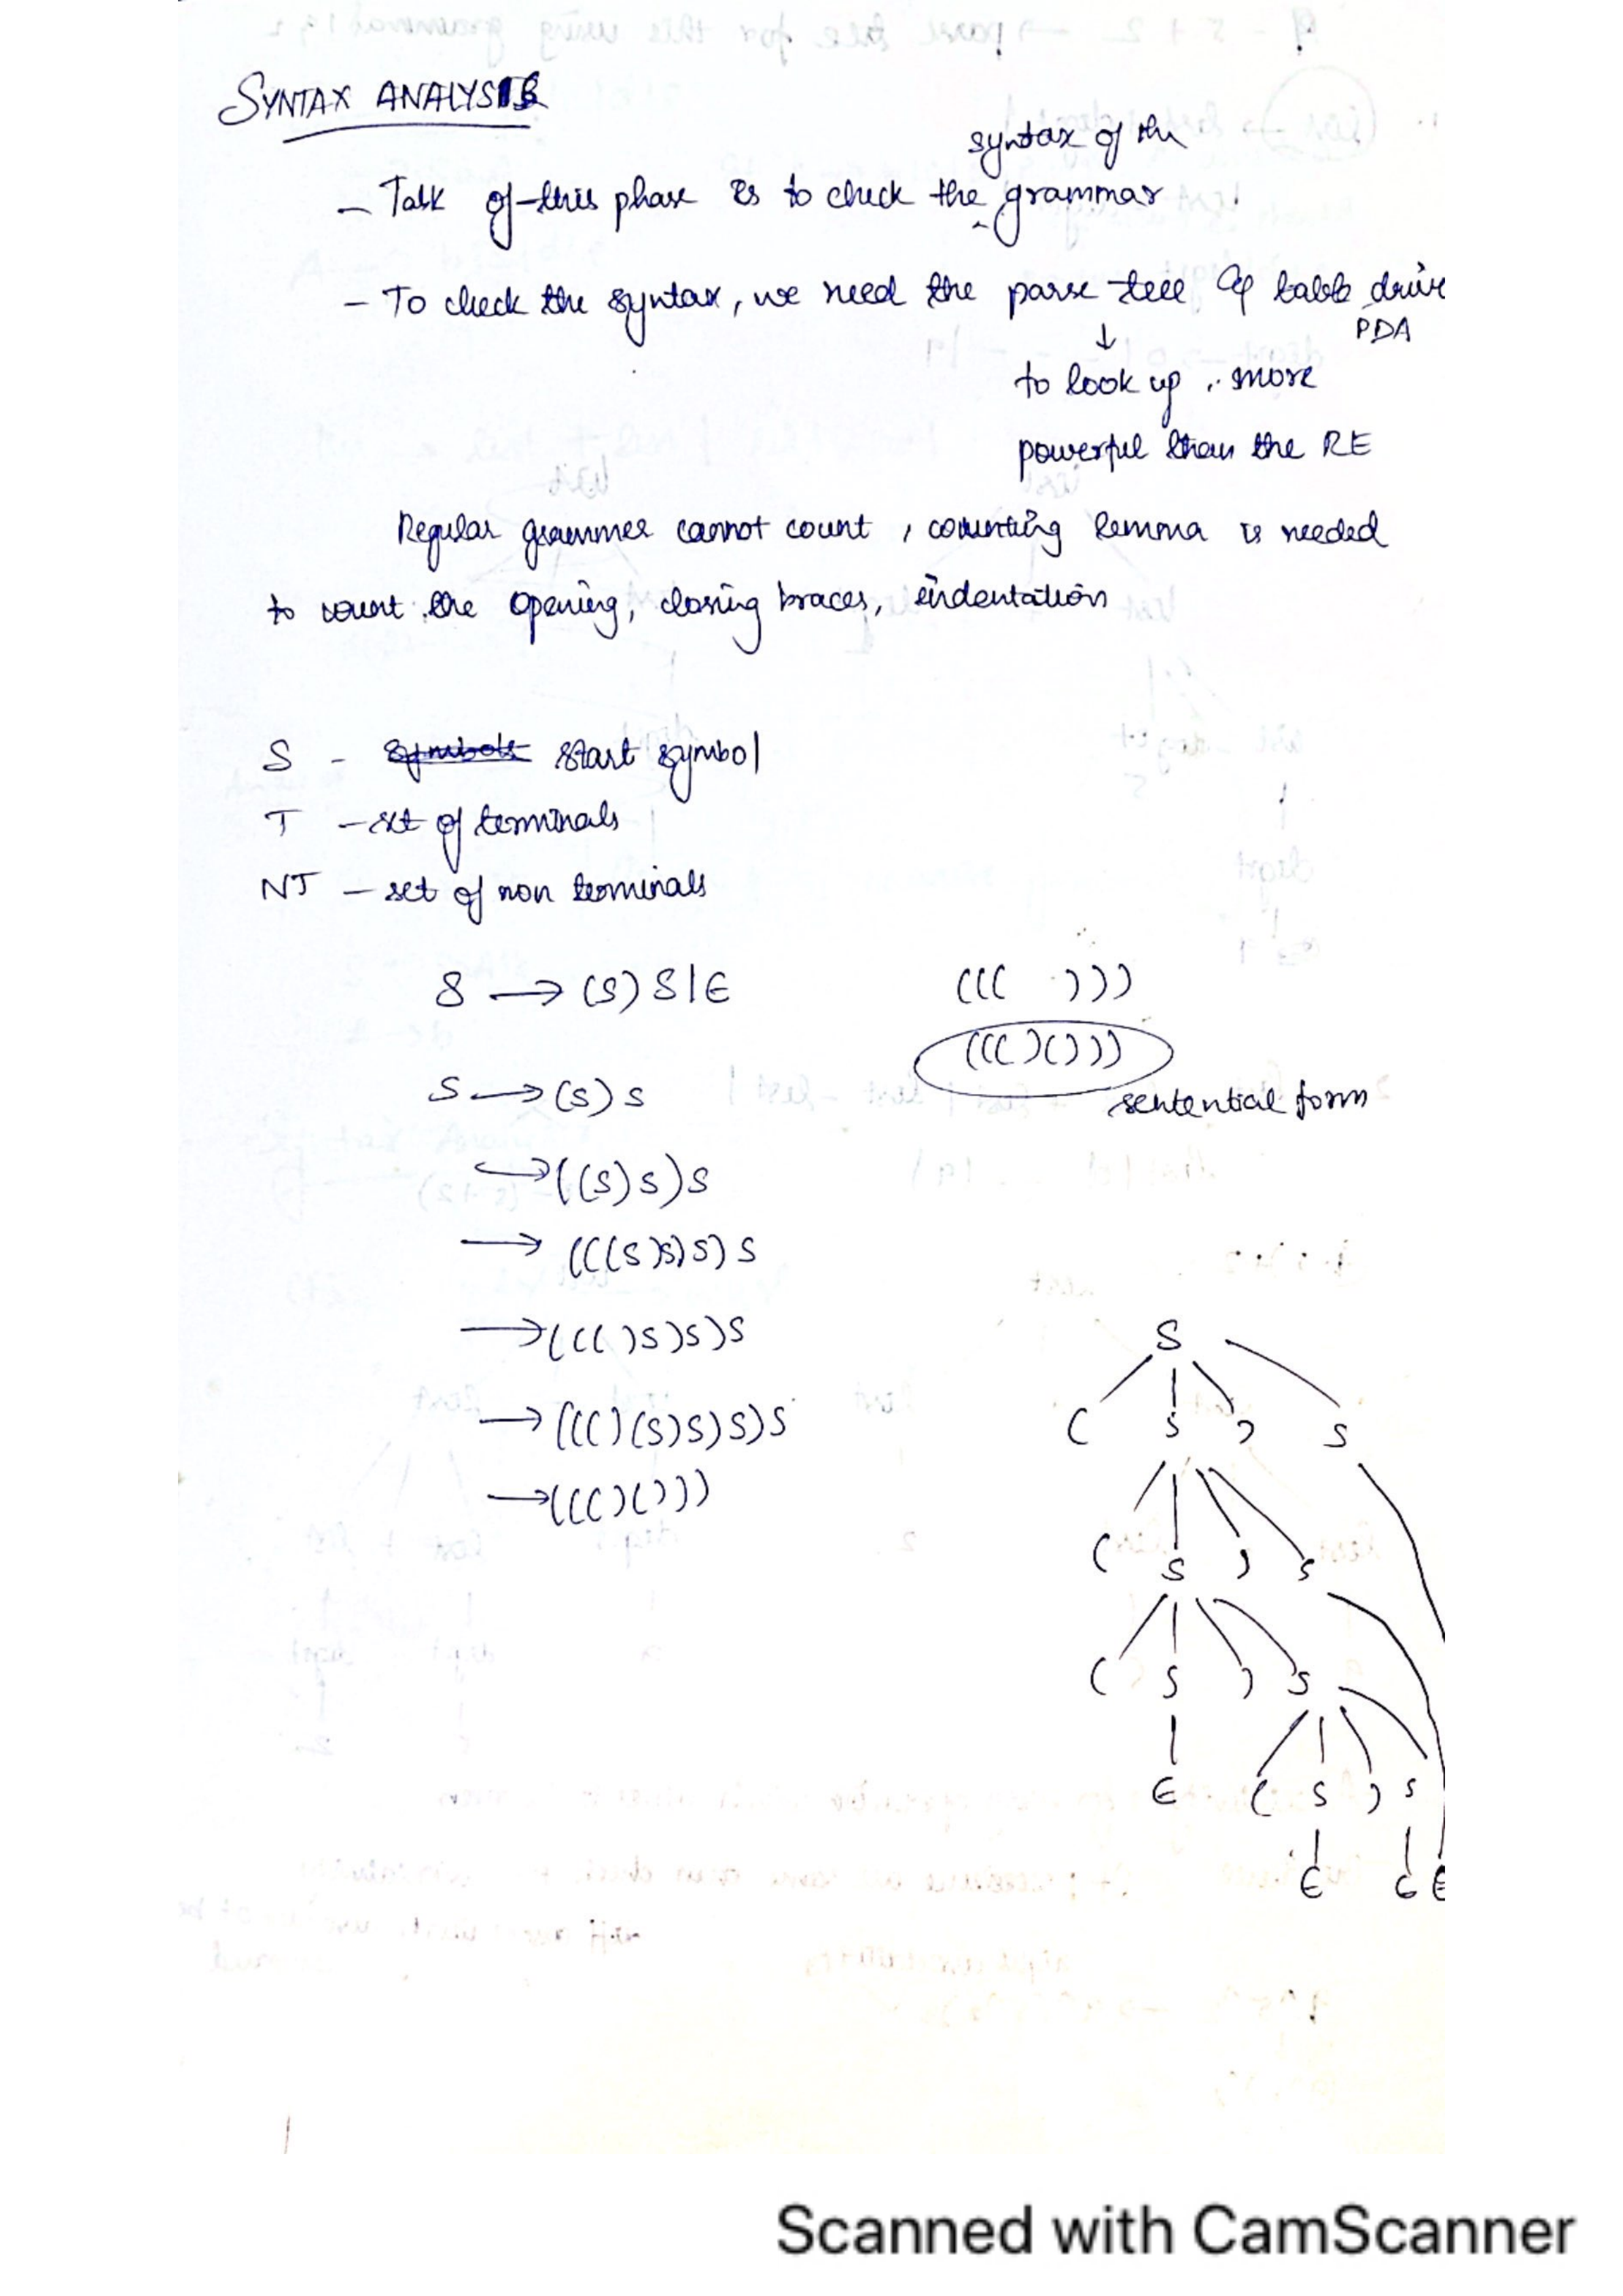 SYNTAX ANALYSIS
syntax of the
- Task of this phase is to check the grammar.
- To check the syntax, we need the parse tree of table drive
PDA
↓
to look up, more
powerful than the RE
Regular grammer cannot count, counting lemma is needed
to count the opening, closing braces, indentation
S - start symbol
T - set of terminals
NT - set of non terminals
S → (S) S | ∈
((( )))
((()()))
sentential form
S → (S) S
→ ((S) S) S
→ (((S)S)S) S
→ ((( )S)S)S
→ ((()(S)S)S)S
→ ((()()))
S
( S ) S
( S ) S
( S ) S
∈ ( S ) S
∈ ∈ ∈
Scanned with CamScanner